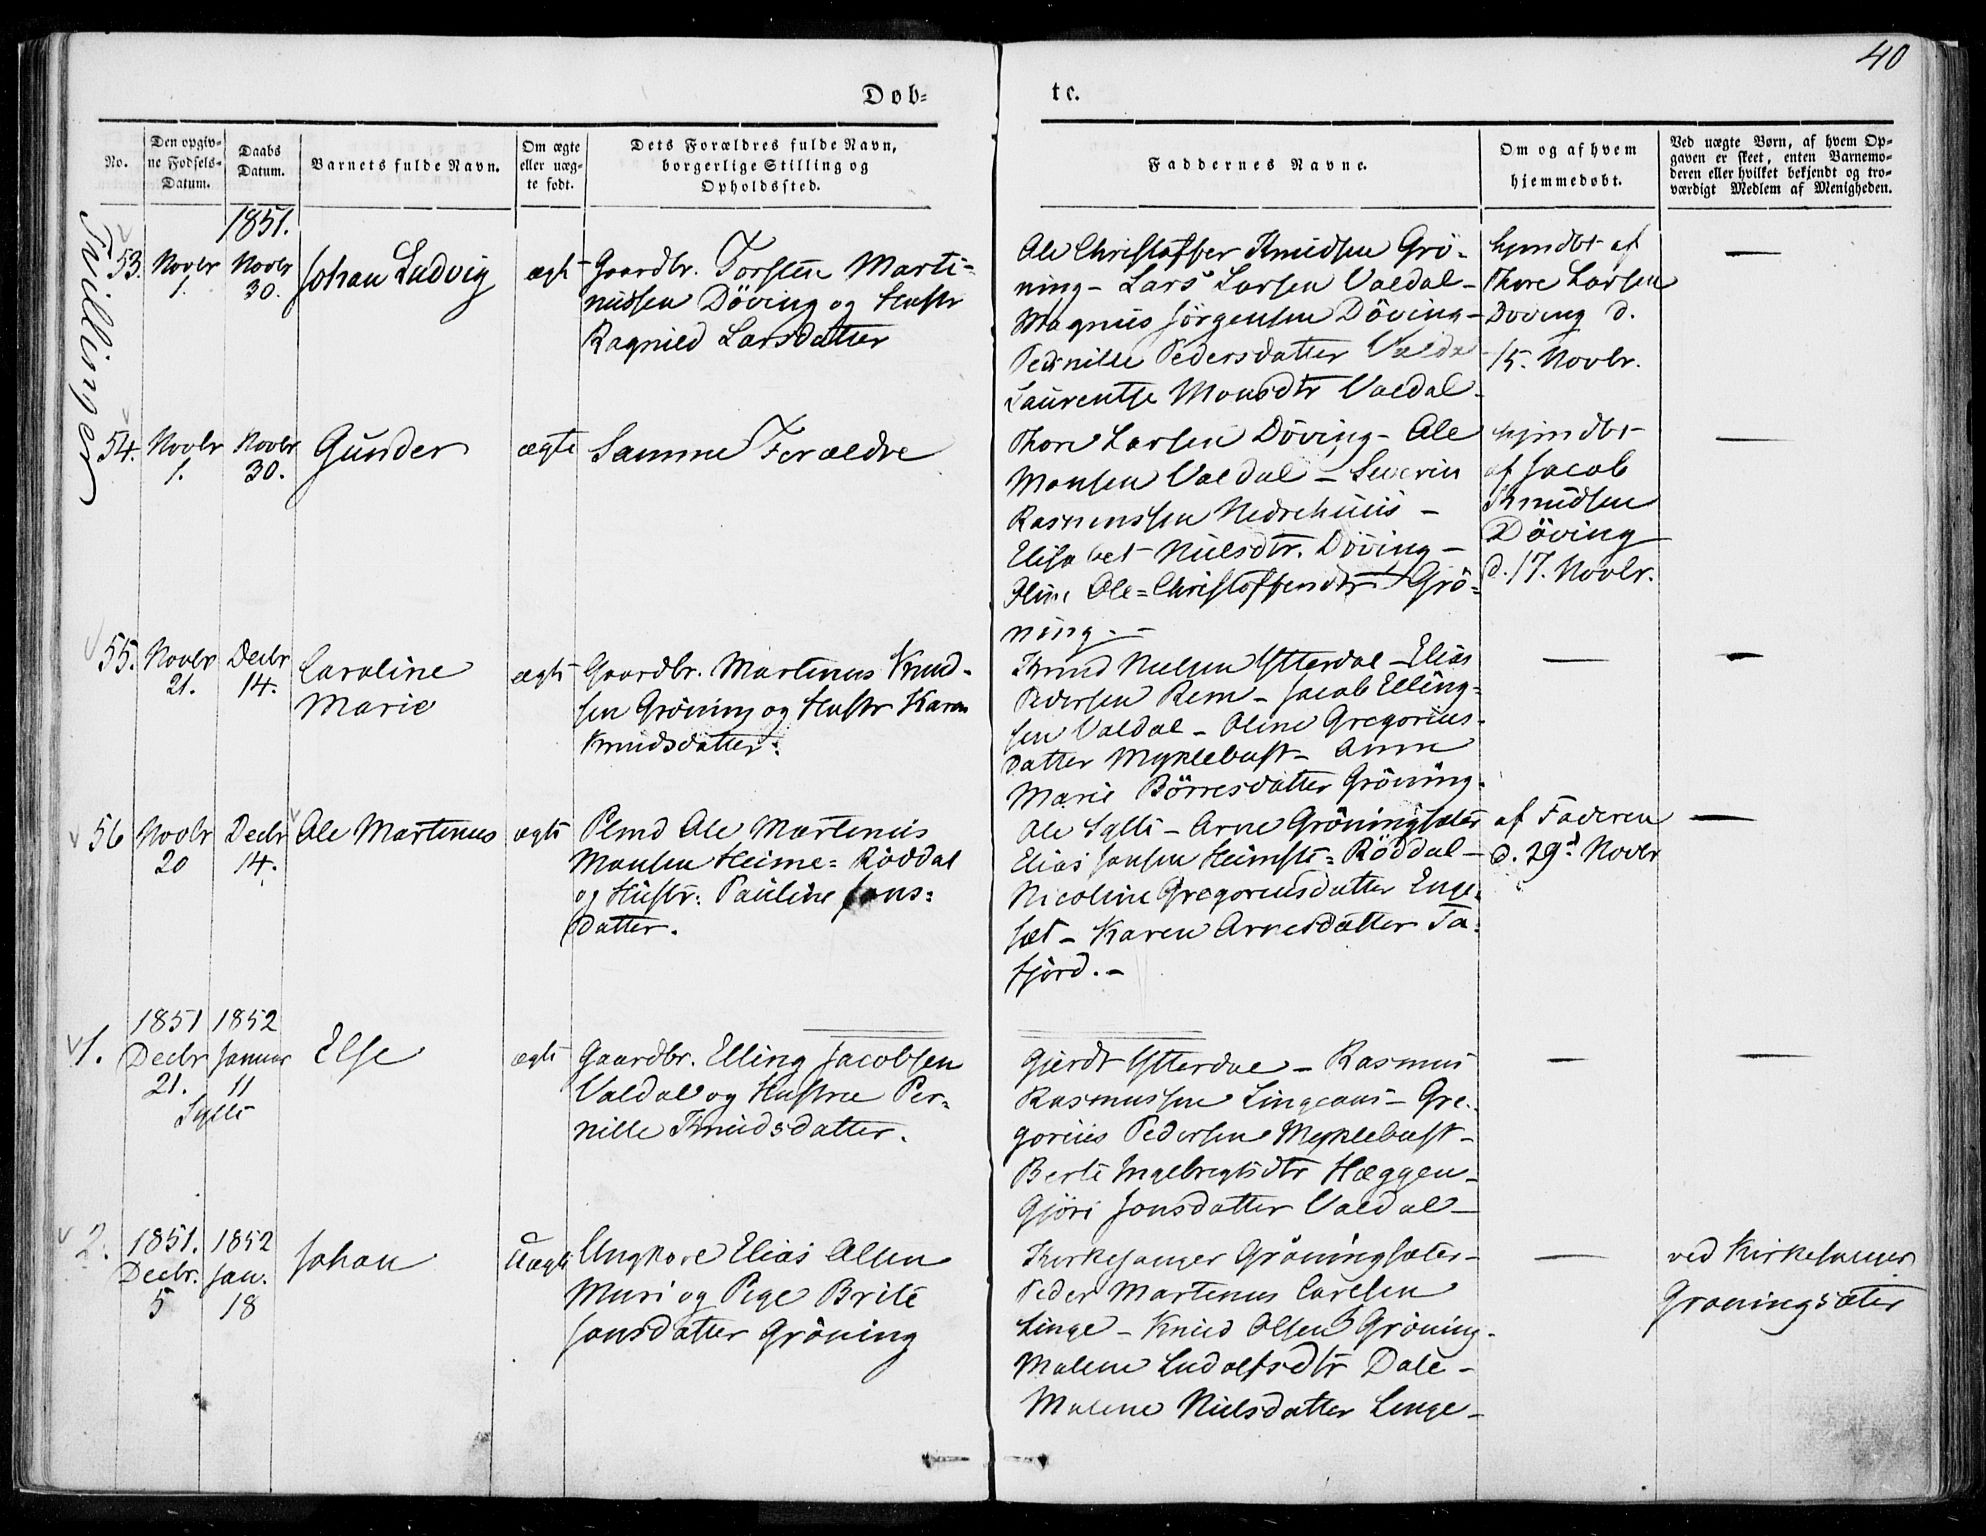 40
Døb-
te.
No.
Den opgiv-
ne Fødsels-
Datum.
Daabs
Datum.
Barnets fulde Navn.
Om ægte
eller uæg-
te født.
Dets Forældres fulde Navn,
borgerlige Stilling og
Opholdssted.
Faddernes Navne.
Om og af hvem
hjemmedøbt.
Ved uægte Børn, af hvem Op-
gaven er skeet, enten Barnemo-
deren eller hvilket bekjendt og tro-
værdigt Medlem af Menigheden.
Tvillinger
1851.
53.
Novbr
1.
Novbr
30.
Johan Ludvig
ægt
Gaardbr. Torsten Marti-
nussen Döving og Hustr
Ragnild Larsdatter
Ole Christoffer Knudsen Grö-
ning - Lars Larsen Valdal -
Magnus Jörgensen Döving -
Pernille Pedersdatter Valdal
Laurentse Monsdtr Valdal -
hjmdbt af
Thore Larsen
Döving d.
15. Novbr.
—
54.
Novbr
1.
Novbr
30.
Gunder
ægte
Samme Forældre
Thore Larsen Döving - Ole
Monsen Valdal - Severin
Rasmussen Nedrehuus -
Elisabet Nielsdtr. Döving -
Ole-Christoffersdtr Grö-
ning. -
hjmdbt
af Jacob
Knudsen
Döving
d. 17. Novbr.
—
55.
Novbr
21.
Decbr
14.
Caroline
Marie
ægte
Gaardbr. Martinus Knud-
sen Gröning og Hustr Karen
Knudsdatter.
Knud Nielsen Ytterdal - Elias
Pedersen Rem - Jacob Elling-
sen Valdal - Oline Gregorius-
datter Myklebust - Anne
Marie Börresdatter Gröning.
—
—
56
Novbr
20
Decbr
14.
Ole Martinus
ægte
Plmd Ole Martinus
Monsen Heime-Röddal
og Hustr: Pauline Jons-
datter.
Ole Sylte - Arne Gröningsæter
Elias Jonsen Heimste-Röddal -
Nicoline Gregoriusdatter Enge-
sæt - Karen Arnesdatter Ta-
fjord. -
af Faderen
d. 29d Novbr
—
1.
1851
Decbr
21.
1852
Januar
11
Sylte
Else
ægte
Gaardbr. Elling Jacobsen
Valdal og Hustru Per-
nille Knudsdatter.
Gjerdt Ytterdal - Rasmus
Rasmussen Lingeaas - Gre-
gorius Pedersen Myklebust -
Berte Ingebregtsdtr Hæggen -
Gjöri Jonsdatter Valdal -
—
—
2.
1851.
Decbr.
5
1852
Jan.
18
Johan
Uægte
Ungkare Elias Olsen
Muri og Pige Brite
Jonsdatter Gröning
Kirkesanger Gröningsæter -
Peder Martinus Carlsen
Linge - Knud Olsen Gröning -
Malene Ludolfsdtr Dale -
Malene Nielsdatter Linge -
—
ved Kirkesanger
Gröningsæter